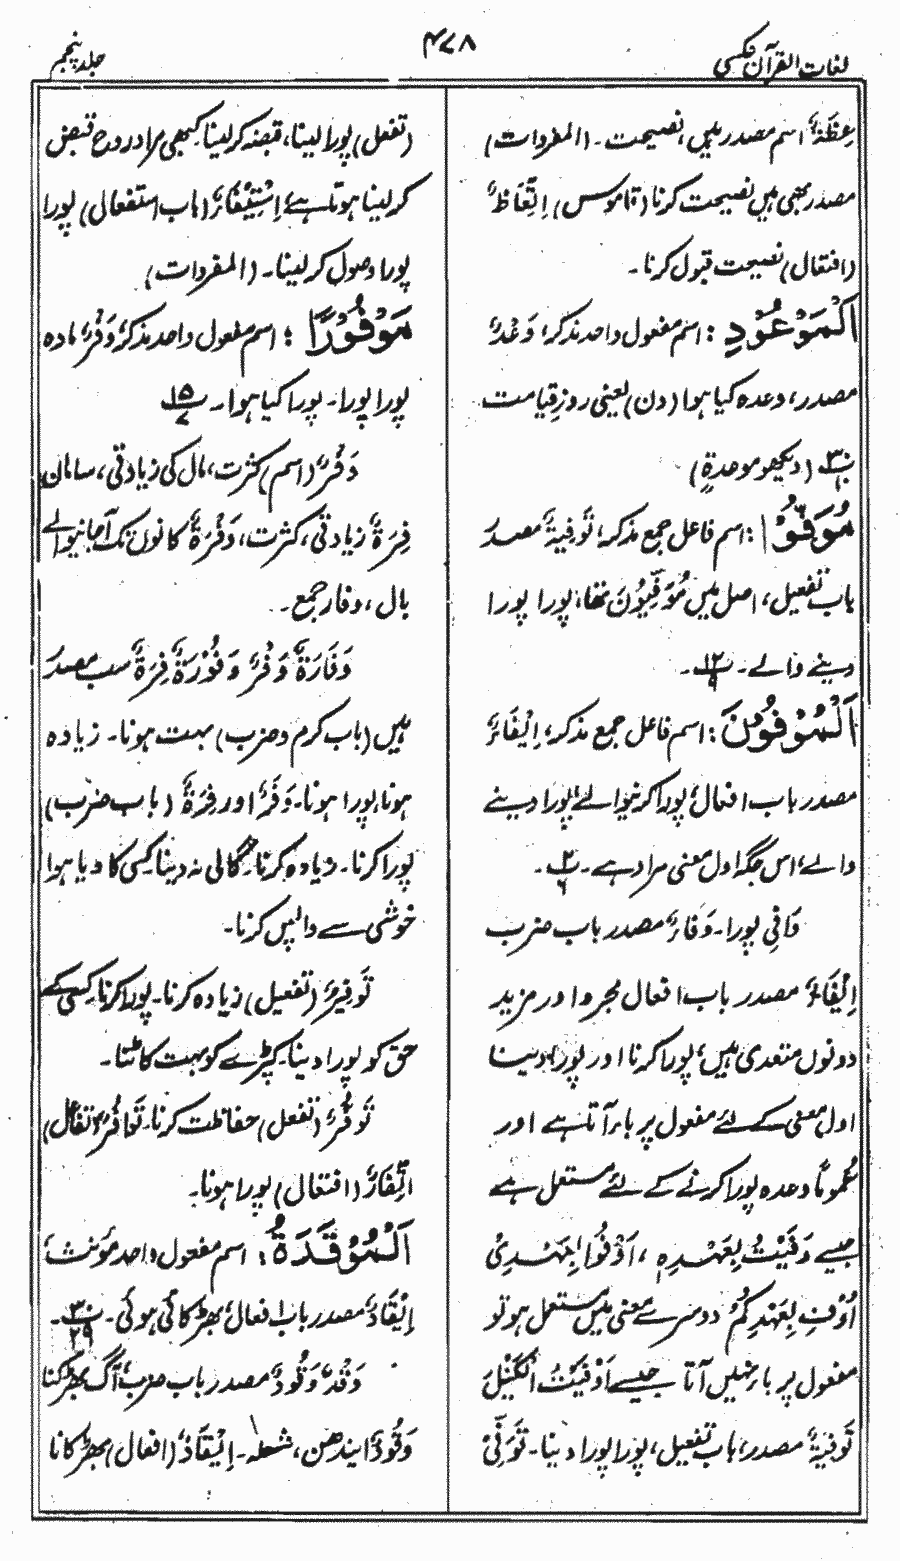 لغات القرآن عکسی
۴۷۸
جلد پنجم
عِظَۃٌ اسم مصدر ہیں، نصیحت۔ (المفردات)
مصدر بھی ہیں نصیحت کرنا (قاموس) اِتِّعَاظٌ
(افتعال) نصیحت قبول کرنا۔
اَلْمَوْعُوْدِ: اسم مفعول واحد مذکر، وَعْدٌ
مصدر، وعدہ کیا ہوا (دن) یعنی روزِ قیامت
۳۰ (دیکھو موعدۃٍ)
مُوَفُّوْا: اسم فاعل جمع مذکر، تَوْفِیَۃٌ مصدر
باب تفعیل، اصل میں مُوَفِّیُوْنَ تھا، پورا پورا
دینے والے۔ ۱۲/۹۔
اَلْمُوْفُوْنَ: اسم فاعل جمع مذکر، اِیْفَاءٌ
مصدر باب افعال، پورا کرنیوالے، پورا دینے
والے، اس جگہ اول معنی مراد ہے۔ ۲/۶۔
وَافِی پورا۔ وَفَاءٌ مصدر باب ضرب
اِیْفَاءٌ مصدر باب افعال مجرد اور مزید
دونوں متعدی ہیں، پورا کرنا اور پورا دینا
اول معنی کے لئے مفعول پر باء آتا ہے اور
عُمومًا وعدہ پورا کرنے کے لئے مستعمل ہے
جیسے وَفَیْتُ بِعَہْدِہٖ، اَوْفُوْا بِعَہْدِیْ
اُوْفِ بِعَہْدِکُمْ دوسرے معنی میں مستعمل ہو تو
مفعول پر باء نہیں آتا جیسے اَوْفَیْتُ الْکَیْلَ
تَوْفِیَۃٌ مصدر، باب تفعیل، پورا پورا دینا۔ تَوَفِّیْ
(تفعل) پورا لینا، قبضہ کر لینا۔ کبھی مراد روح قبض
کر لینا ہوتا ہے، اِسْتِیْفَاءٌ (باب استفعال) پورا
پورا وصول کر لینا۔ (المفردات)
مَوْفُوْرًا: اسم مفعول واحد مذکر، وَفْرٌ مادہ
پورا پورا۔ پورا کیا ہوا۔ ۱۵/۷
وَفْرٌ (اسم) کثرت، مال کی زیادتی، سامان
فِرَۃٌ زیادتی، کثرت، وَفْرَۃٌ کانوں تک آجانیوالے
بال، وفار جمع۔
وَفَارَۃٌ وَفْرٌ وَفُوْرَۃٌ فِرَۃٌ سب مصدر
ہیں (باب کرم و ضرب) بہت ہونا۔ زیادہ
ہونا، پورا ہونا۔ وَفْرٌ اور فِرَۃٌ (باب ضرب)
پورا کرنا۔ زیادہ کرنا۔ گالی نہ دینا کسی کا دیا ہوا
خوشی سے واپس کرنا۔
تَوْفِیْرٌ (تفعیل) زیادہ کرنا۔ پورا کرنا۔ کسی کے
حق کو پورا دینا۔ کپڑے کو بہت کاٹنا۔
تَوَفُّرٌ (تفعل) حفاظت کرنا۔ تَوَافُرٌ (تفاعل)
اِتِّفَارٌ (افتعال) پورا ہونا۔
اَلْمُوْقَدَۃُ: اسم مفعول واحد مؤنث،
اِیْقَادٌ مصدر باب افعال، بھڑکائی ہوئی۔ ۳۰/۲۹۔
وَقْدٌ وَقُوْدٌ مصدر باب ضرب، آگ بھڑکنا
وَقُوْدٌ ایندھن، شعلہ۔ اِیْقَادٌ (افعال) بھڑکانا